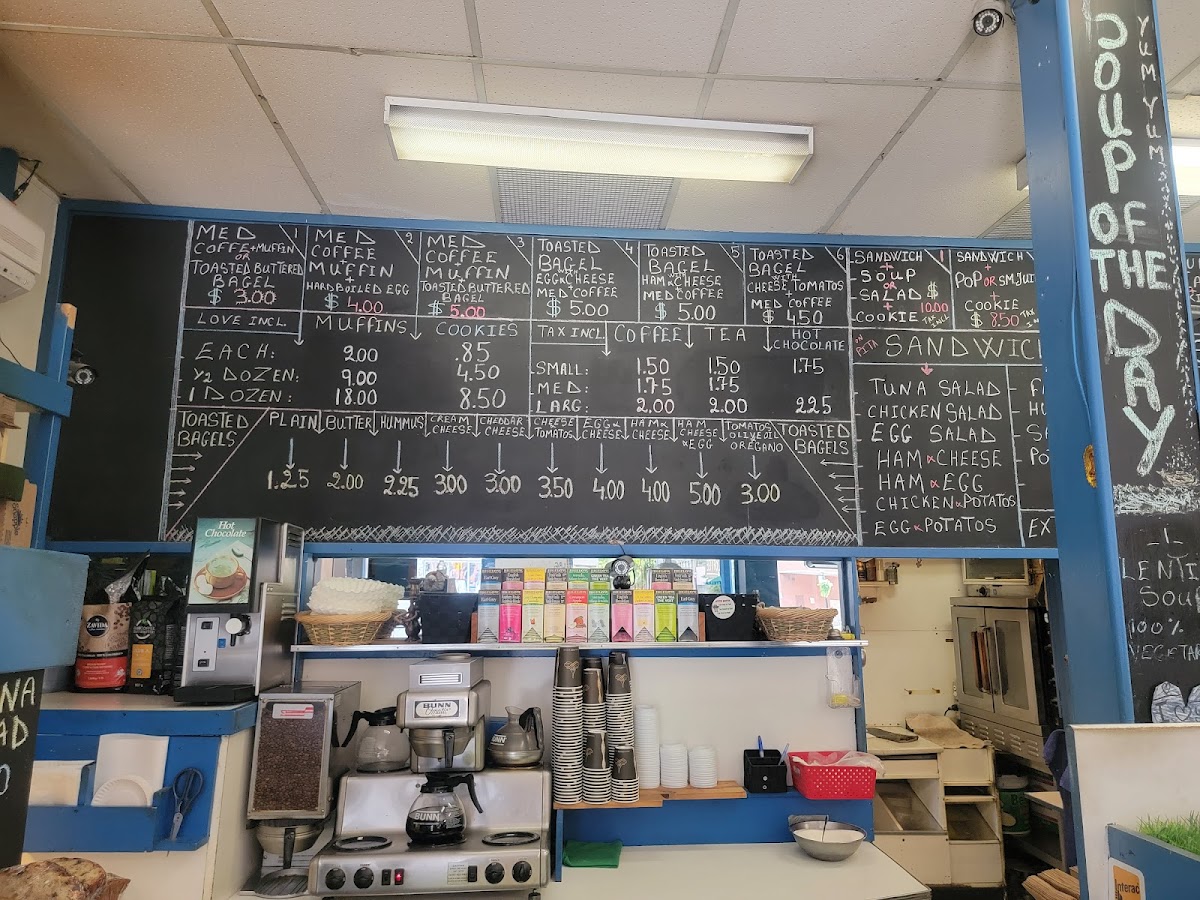 MED 1
COFFE + MUFFIN
OR
TOASTED BUTTERED
BAGEL
$ 3.00
MED 2
COFFEE
+
MUFFIN
+
HARD BOILED EGG
$ 4.00
MED 3
COFFEE
+
MUFFIN
TOASTED BUTTERED
BAGEL
$ 5.00
TOASTED 4
BAGEL
WITH
EGG & CHEESE
+
MED COFFEE
$ 5.00
TOASTED 5
BAGEL
WITH
HAM & CHEESE
+
MED COFFEE
$ 5.00
TOASTED 6
BAGEL
WITH
CHEESE, TOMATOS
+
MED COFFEE
$ 4.50
SANDWICH 1
+
SOUP
OR
SALAD $
+ 10.00
COOKIE TAX INCL
SANDWICH
+
POP OR SM. JUI
+
COOKIE
$ 8.50 TAX
LOVE INCL.
MUFFINS COOKIES
EACH: 2.00 .85
1/2 DOZEN: 9.00 4.50
1 DOZEN: 18.00 8.50
TAX INCL COFFEE TEA HOT CHOCOLATE
SMALL: 1.50 1.50 1.75
MED: 1.75 1.75
LARG: 2.00 2.00 2.25
TOASTED
BAGELS
PLAIN BUTTER HUMMUS CREAM CHEESE CHEDDAR CHEESE CHEESE TOMATOS EGG & CHEESE HAM & CHEESE HAM CHEESE & EGG TOMATOS OLIVE OIL OREGANO
TOASTED
BAGELS
1.25 2.00 2.25 3.00 3.00 3.50 4.00 4.00 5.00 3.00
ON
PITA
SANDWIC
TUNA SALAD
CHICKEN SALAD
EGG SALAD
HAM & CHEESE
HAM & EGG
CHICKEN & POTATOS
EGG & POTATOS
EX
SOUP OF THE DAY
YUM YUM
LENTI
SOU
100%
VEGETAR
Hot
Chocolate
ZAVIDA
BUNN
BUNN
BUNN
nterac